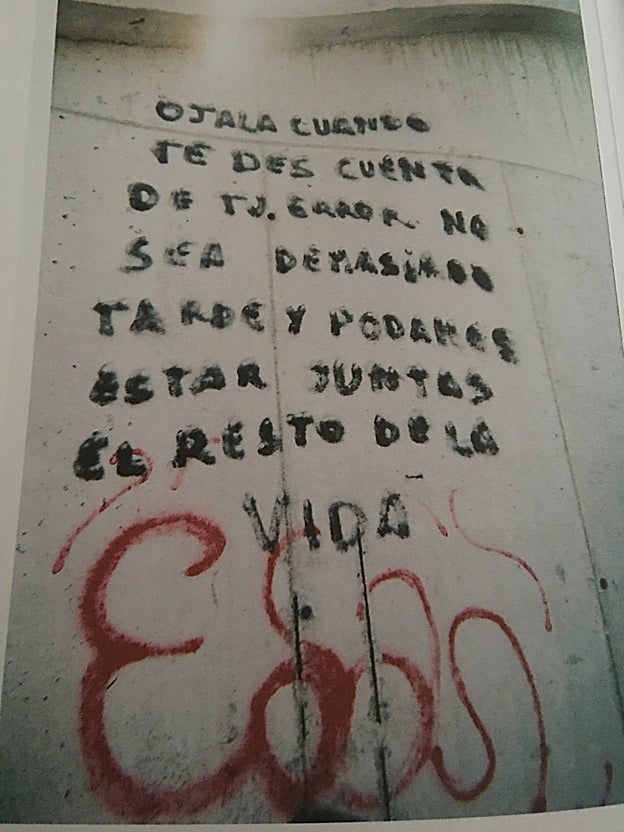 OJALA CUANDO
TE DES CUENTA
DE TU. ERROR NO
SEA DEMASIADO
TARDE Y PODAMOS
ESTAR JUNTOS
EL RESTO DE LA
VIDA